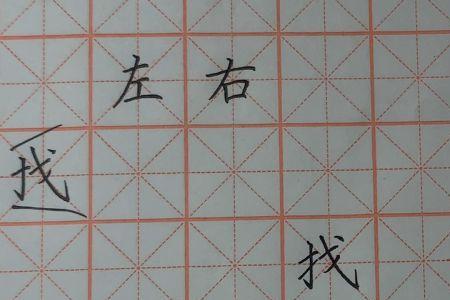 左右
找
找